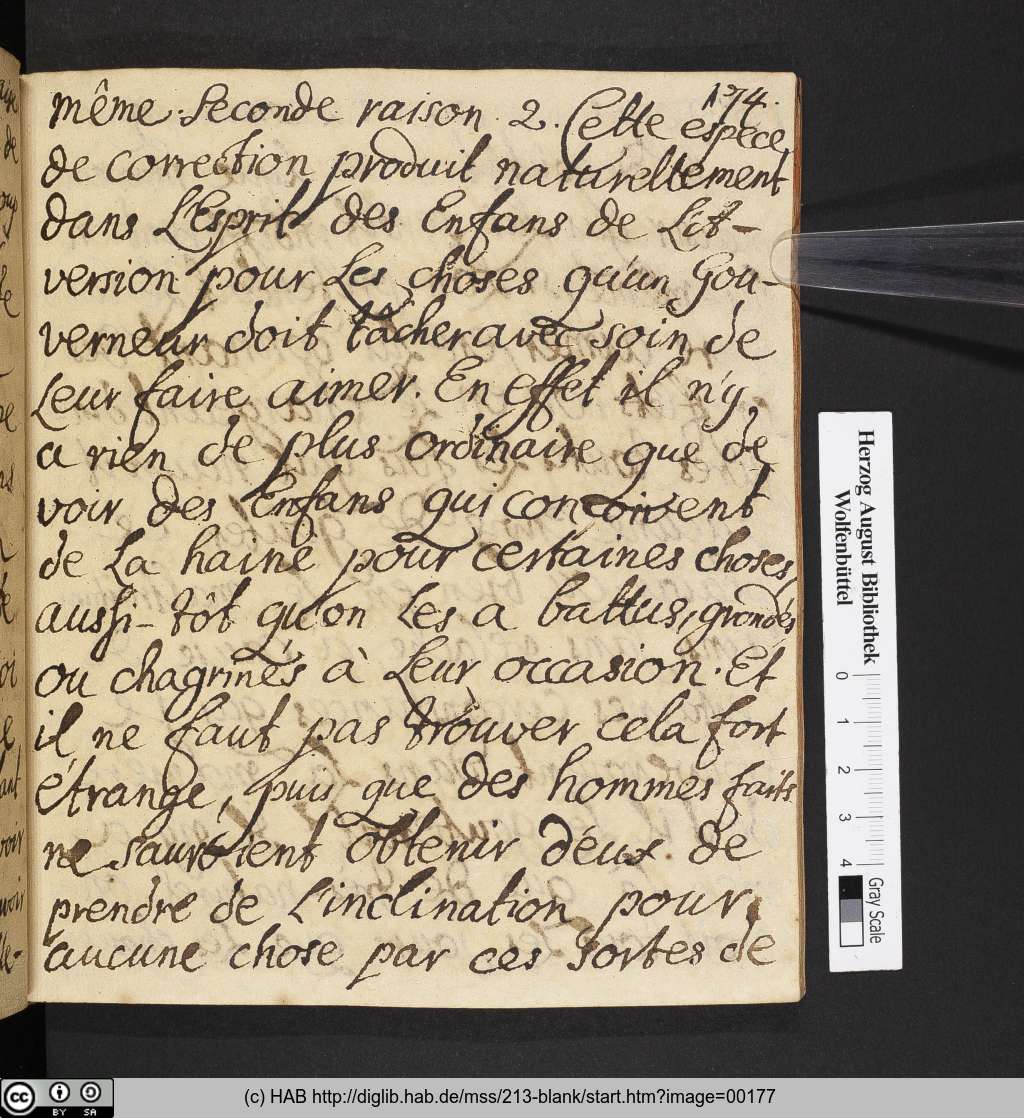 174.
même. Seconde raison. 2. Cette espece
de correction produit naturellement
dans L'Esprit des Enfans de L'A-
version pour Les choses qu'un Gou-
verneur doit tâcher avec soin de
Leur faire aimer. En effet il n'y
a rien de plus ordinaire que de
voir des Enfans qui conçoivent
de La haine pour certaines choses,
aussi-tôt qu'on Les a battus, grondés
ou chagrinés à Leur occasion. Et
il ne faut pas trouver cela fort
étrange, puis que des hommes faits
ne sauroient obtenir d'eux de
prendre de L'inclination pour
aucune chose par ces sortes de
Herzog August Bibliothek
Wolfenbüttel
0 1 2 3 4
Gray Scale
(c) HAB http://diglib.hab.de/mss/213-blank/start.htm?image=00177
cc BY SA